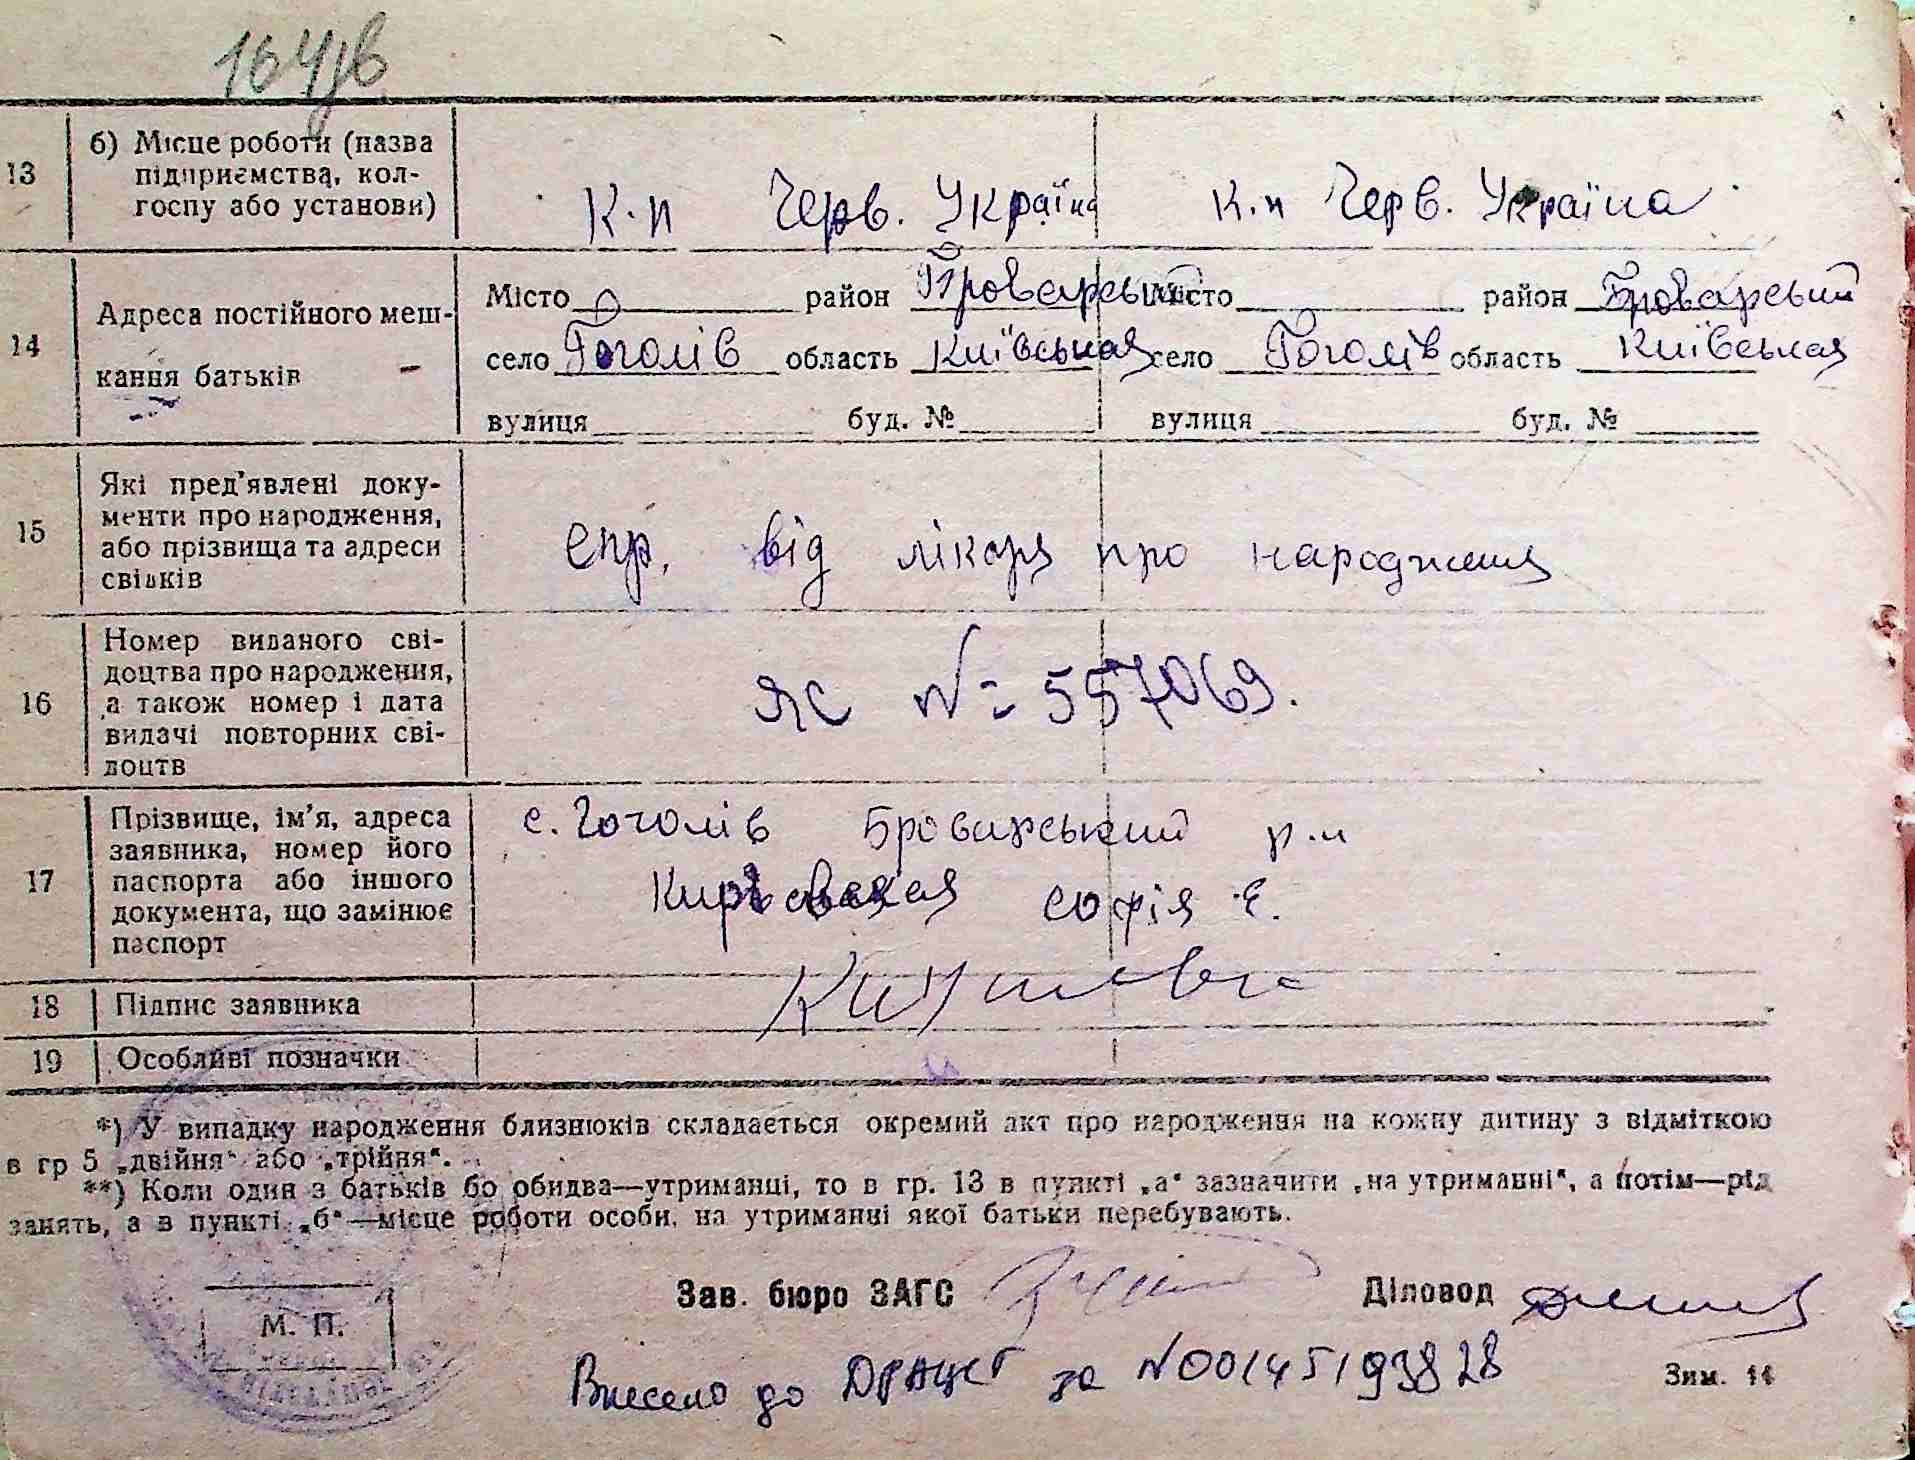 164зв
13 б) Місце роботи (назва
підприємства, кол-
госпу або установи)
к-п Черв. Україна к.п Черв. Україна
14 Адреса постійного меш-
кання батьків
Місто район Броварський Місто район Броварський
село Гоголів область Київськая село Гоголів область Київськая
вулиця буд. № вулиця буд. №
15 Які пред'явлені доку-
менти про народження,
або прізвища та адреси
свідків
спр. від лікаря про народження
16 Номер виданого сві-
доцтва про народження,
а також номер і дата
видачі повторних сві-
доцтв
ЯС № 557069.
17 Прізвище, ім'я, адреса
заявника, номер його
паспорта або іншого
документа, що замінює
паспорт
с. Гоголів Броварський р-н
Софія Є.
18 Підпис заявника
19 Особливі позначки
*) У випадку народження близнюків складається окремий акт про народження на кожну дитину з відміткою
в гр 5 „двійня“ або „трійня“.
**) Коли один з батьків бо обидва—утриманці, то в гр. 13 в пункті „а“ зазначити „на утриманні“, а потім—рід
занять, а в пункті „б“—місце роботи особи, на утриманні якої батьки перебувають.
Зав. бюро ЗАГС Діловод
М. П.
Внесено до ДРАЦСГ за №00145193828
Зим. 14